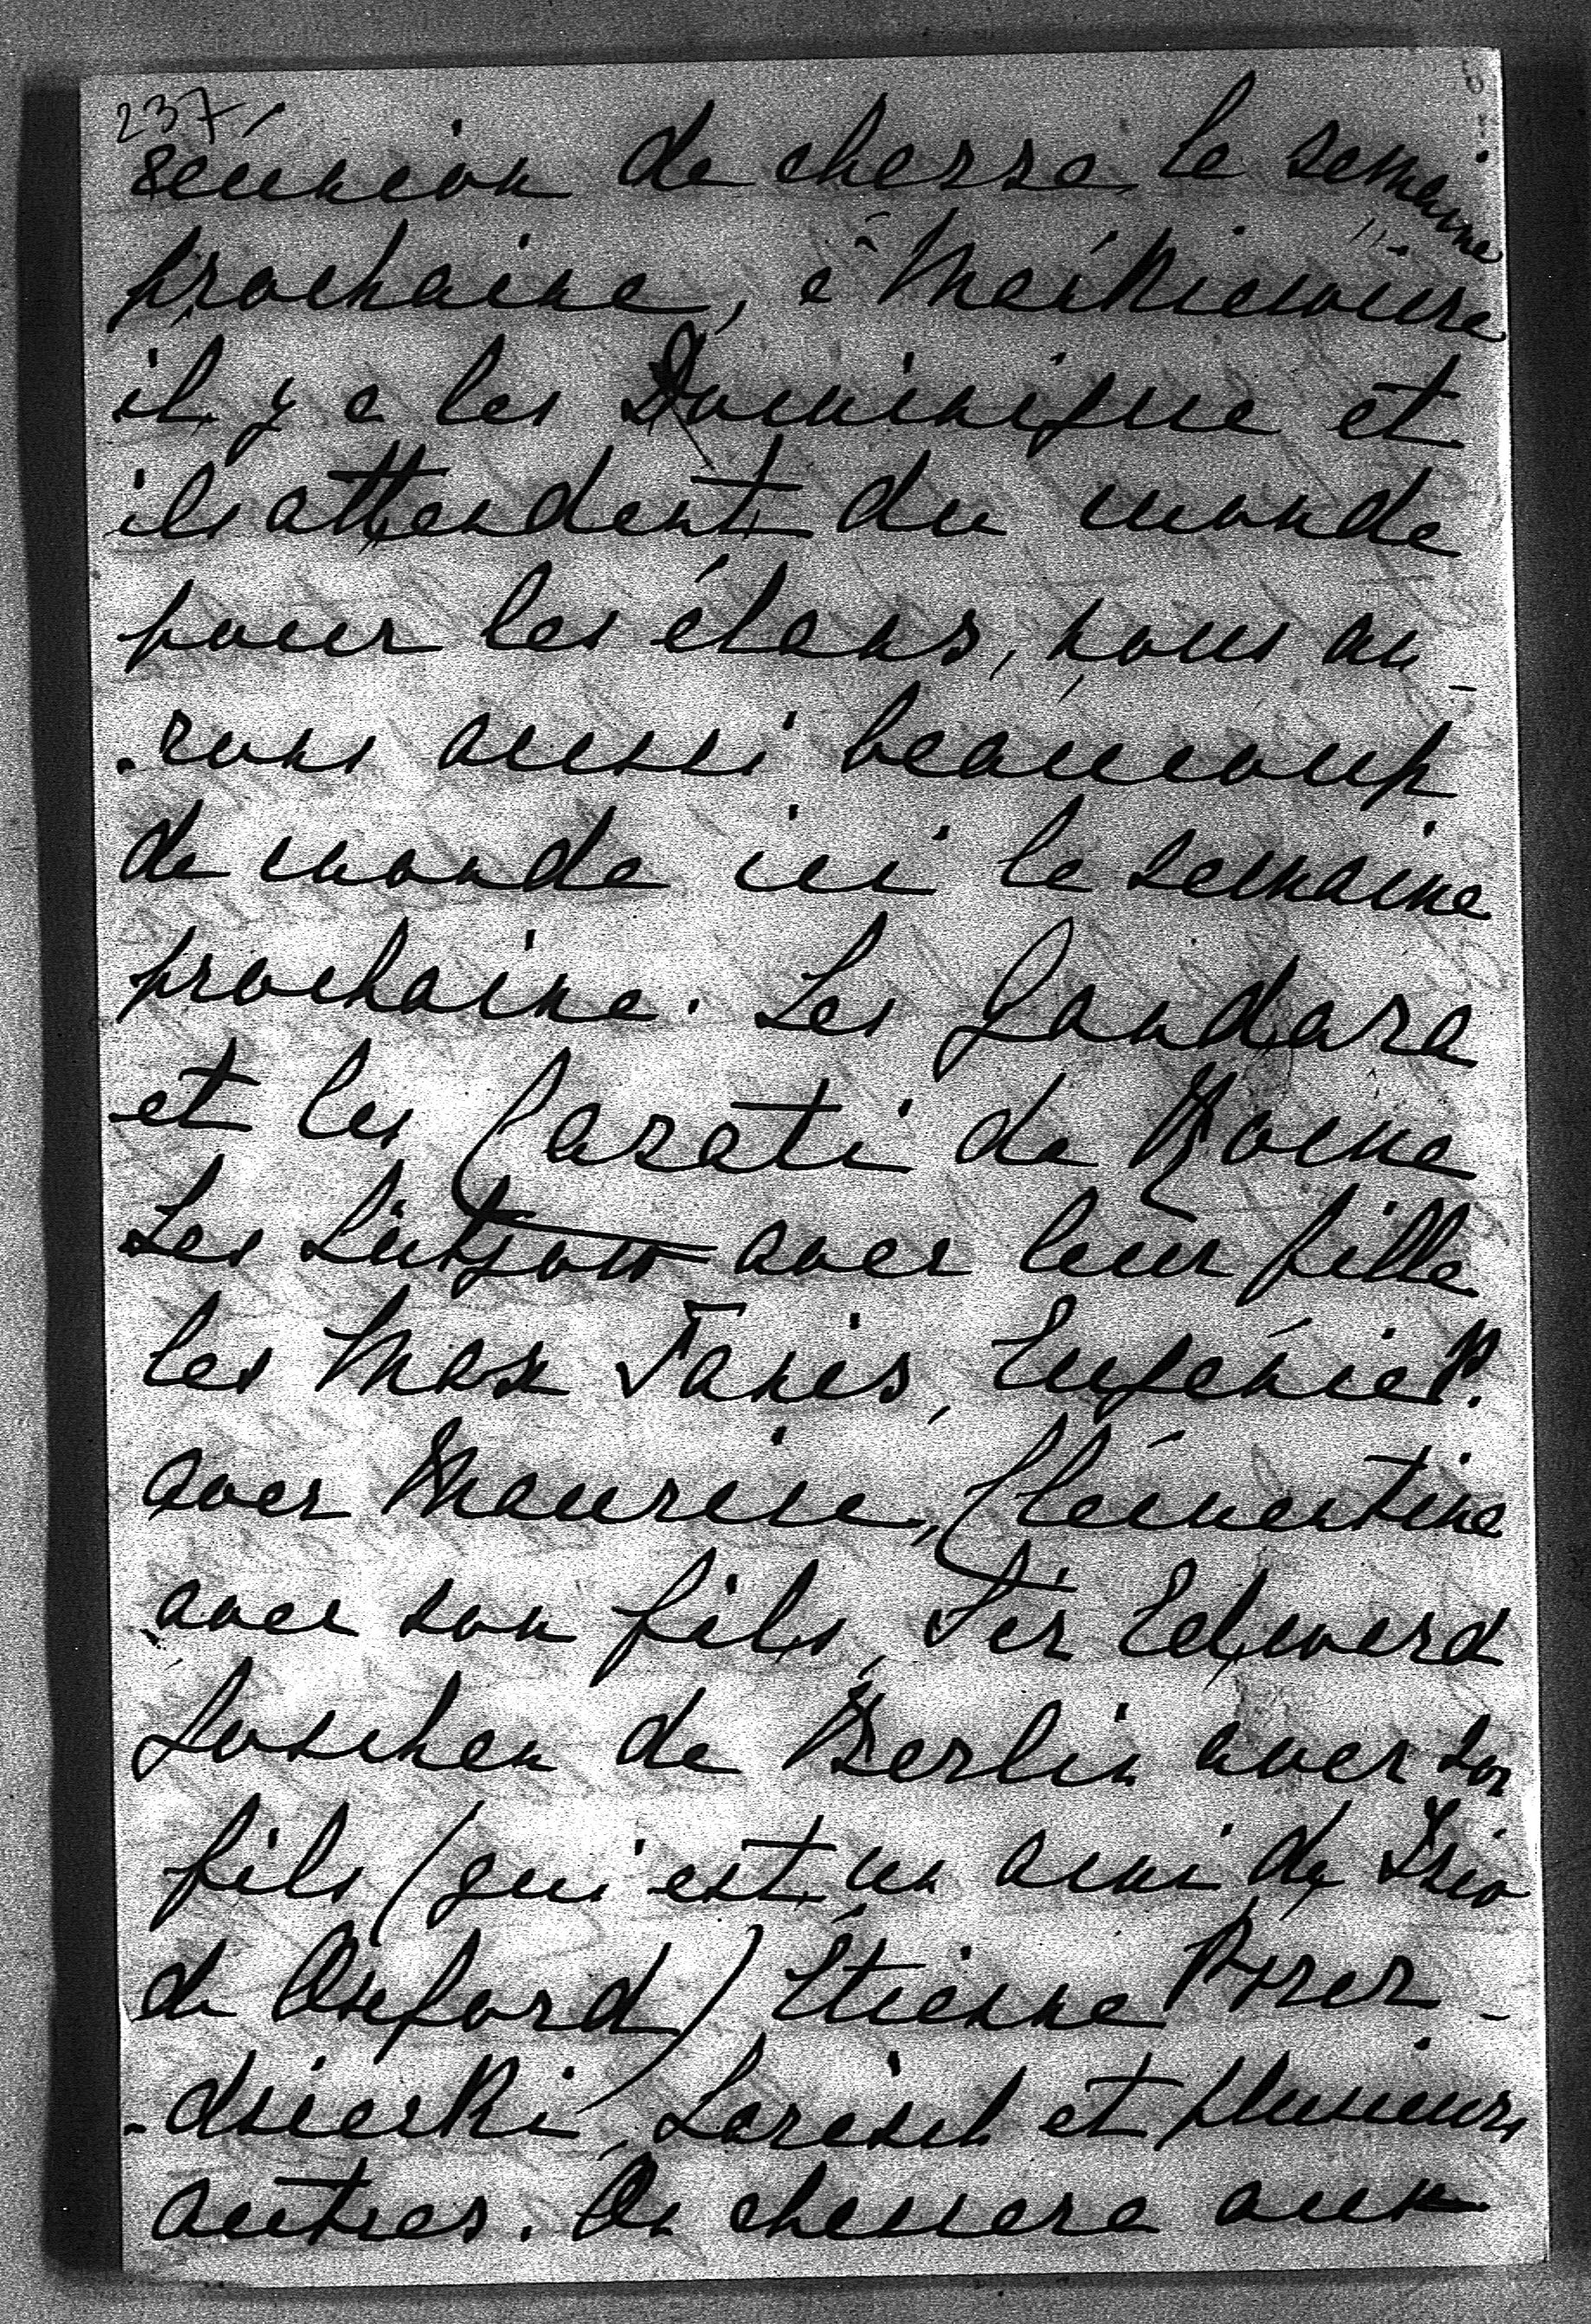 237,
réunion de chasse la semaine
prochaine, à Maïkiewicze
il y a les Dominique et
ils attendent du monde
pour les élans, nous au-
-rons aussi beaucoup
de monde ici la semaine
prochaine. Les Gandara
et les Casati de Rome
Les Lützow avec leur fille
les Max Taxis, Eugénie P.
avec Maurice, Clémentine
avec son fils, Sir Edward
Goschen de Berlin avec son
fils (qui est un ami de
de Oxford) Etienne Przez-
-dziecki, Larisch et plusieurs
autres. On chassera aux